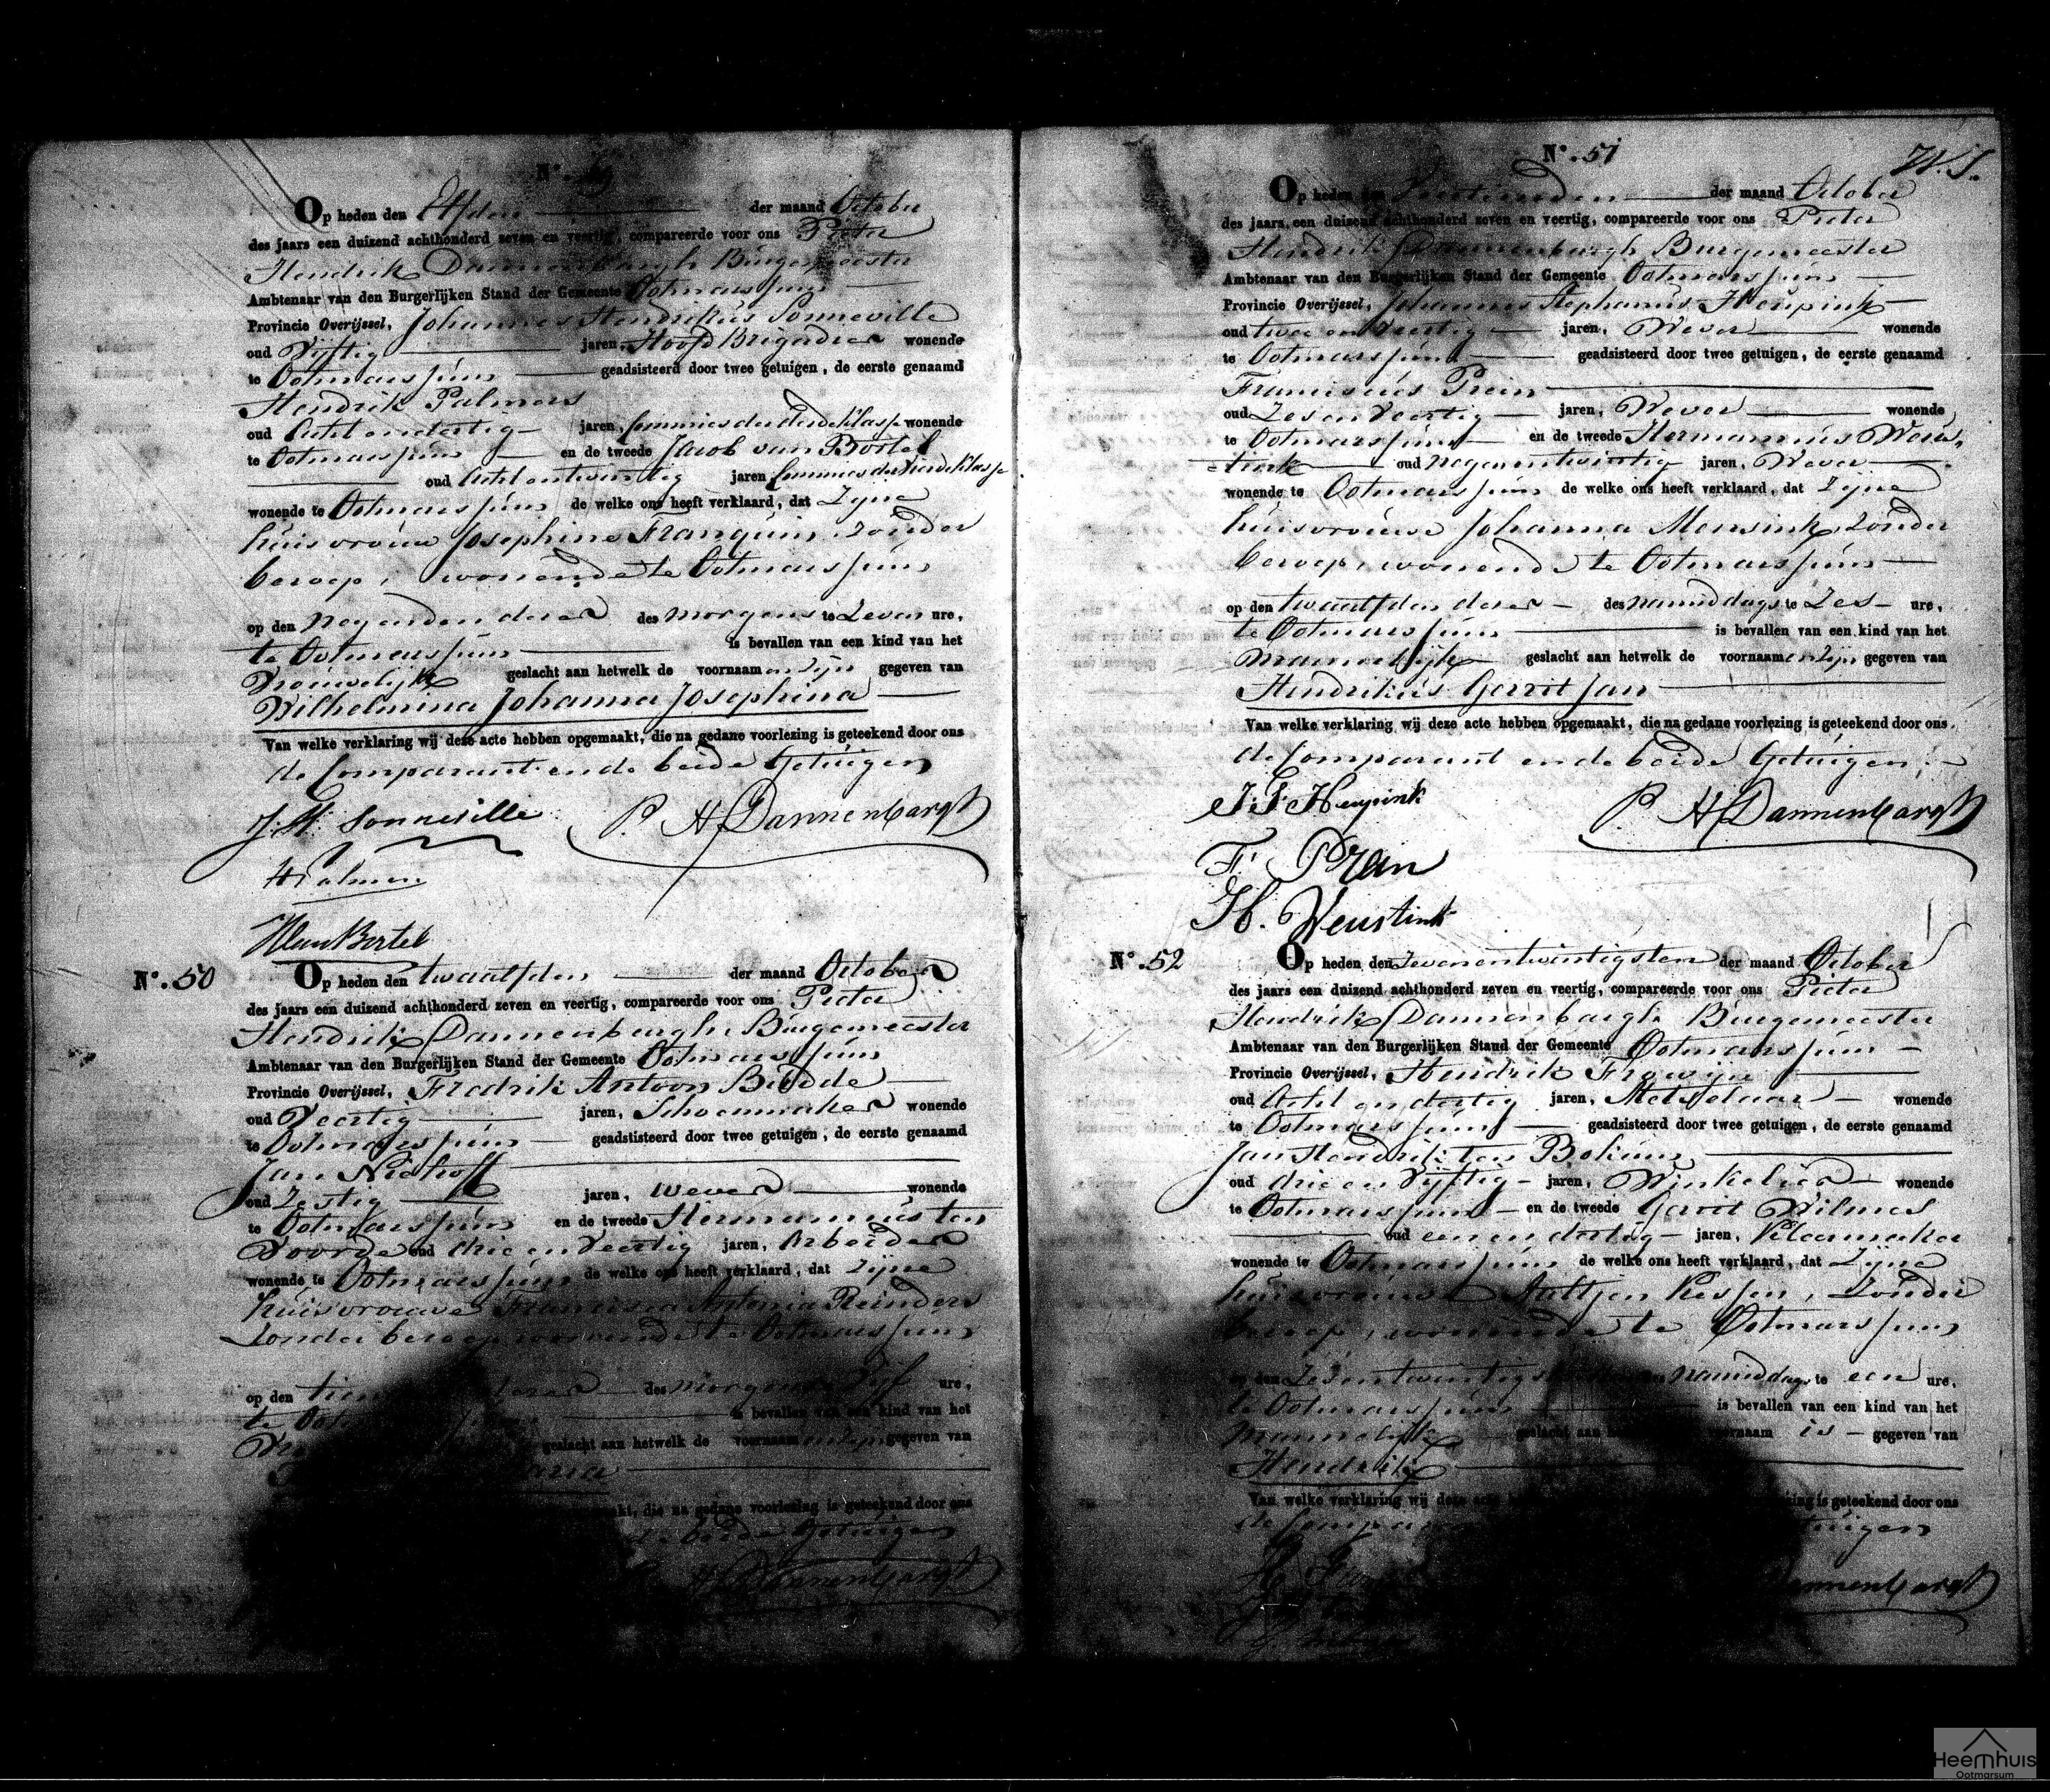 N°. 49
Op heden den Elfden der maand October
des jaars een duizend achthonderd zeven en veertig, compareerde voor ons Pieter
Hendrik Dannenbargh Burgemeester
Ambtenaar van den Burgerlijken Stand der Gemeente Ootmarssum
Provincie Overijssel, Johannes Hendrikus Sonneville
oud Vyftig jaren, Hoofd Brigadier wonende
te Ootmarssum geadsisteerd door twee getuigen, de eerste genaamd
Hendrik Palmers
oud Acht en dertig jaren, Commies der derde klasse wonende
te Ootmarssum en de tweede Jacob van Bortel
oud Acht en twintig jaren Commies der vierde klasse
wonende te Ootmarssum de welke ons heeft verklaard, dat Zyne
huisvrouw Josephine Franquin, zonder
beroep, wonende te Ootmarssum
op den negenden dezer des morgens te Zeven ure,
te Ootmarssum is bevallen van een kind van het
Vrouwelijk geslacht aan hetwelk de voornaamen zijn gegeven van
Wilhelmina Johanna Josephina
Van welke verklaring wij deze acte hebben opgemaakt, die na gedane voorlezing is geteekend door ons
de Comparant en de beide Getuigen
J. H. Sonneville P. H Dannenbargh
H Palmers
van Bortel
N°. 50
Op heden den twaalfden der maand October
des jaars een duizend achthonderd zeven en veertig, compareerde voor ons Pieter
Hendrik Dannenbargh Burgemeester
Ambtenaar van den Burgerlijken Stand der Gemeente Ootmarssum
Provincie Overijssel, Fredrik Antoon Budde
oud Veertig jaren, Schoenmaker wonende
te Ootmarssum geadsisteerd door twee getuigen, de eerste genaamd
Jan Niehoff
oud Zestig jaren, wever wonende
te Ootmarssum en de tweede Hermannus ten
Voorde oud drie en Veertig jaren, Arbeider
wonende te Ootmarssum de welke ons heeft verklaard, dat zijne
huisvrouwe Francisca Antonia Reinders
zonder beroep wonende te Ootmarssum
op den dezer des morgens Vijf ure,
te is bevallen van een kind van het
geslacht aan hetwelk de voornaamen zijn gegeven van
Maria
die na gedane voorlezing is geteekend door ons
beide Getuigen
H Dannenbargh
N°. 51
74. S.
Op heden den Veertienden der maand October
des jaars een duizend achthonderd zeven en veertig, compareerde voor ons Pieter
Hendrik Dannenbargh Burgemeester
Ambtenaar van den Burgerlijken Stand der Gemeente Ootmarssum
Provincie Overijssel, Johannes Stephanus Heupink
oud twee en Veertig jaren, Wever wonende
te Ootmarssum geadsisteerd door twee getuigen, de eerste genaamd
Franciscus Prein
oud Zes en Veertig jaren, Wever wonende
te Ootmarssum en de tweede Hermannus Weus-
tink oud negenentwintig jaren, Wever
wonende te Ootmarssum de welke ons heeft verklaard, dat Zijne
huisvrouwe Johanna Mensink, zonder
beroep, wonende te Ootmarssum
op den twaalfden dezer des namiddags te Zes ure,
te Ootmarssum is bevallen van een kind van het
Mannelijk geslacht aan hetwelk de voornaamen zijn gegeven van
Hendrikus Gerrit Jan
Van welke verklaring wij deze acte hebben opgemaakt, die na gedane voorlezing is geteekend door ons
de Comparant en de beide Getuigen
J: S: Heupink P. H Dannenbargh
F. Prein
H. Weustink
N°. 52
Op heden den Zevenentwintigsten der maand October
des jaars een duizend achthonderd zeven en veertig, compareerde voor ons Pieter
Hendrik Dannenbargh Burgemeester
Ambtenaar van den Burgerlijken Stand der Gemeente Ootmarssum
Provincie Overijssel, Hendrik Frowyn
oud Acht en dertig jaren, Metselaar wonende
te Ootmarssum geadsisteerd door twee getuigen, de eerste genaamd
Jan Hendrik ten Bokum
oud drie en Vijftig jaren, Winkelier wonende
te Ootmarssum en de tweede Gerrit Wilmes
oud een en dertig jaren, Kleermaker
wonende te Ootmarssum de welke ons heeft verklaard, dat Zijne
huisvrouwe Aaltjen Kessen, zonder
beroep, wonende te Ootmarssum
op den Zesentwintigsten namiddags te een ure,
te Ootmarssum is bevallen van een kind van het
Mannelijk geslacht aan voornaam is gegeven van
Hendrik
Van welke verklaring wij deze acte is geteekend door ons
de Getuigen
H Dannenbargh